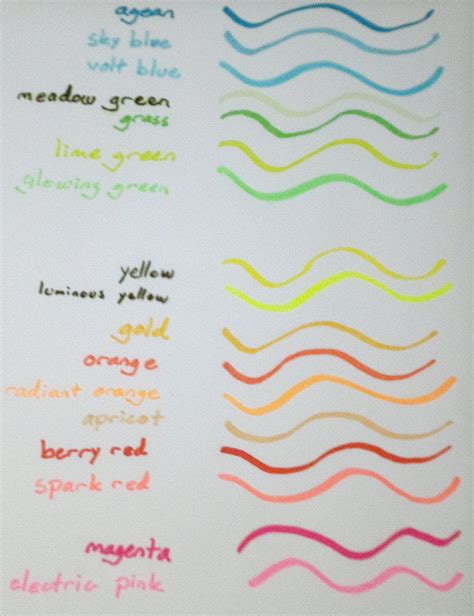 agean
sky blue
volt blue
meadow green
grass
lime green
glowing green
yellow
luminous yellow
gold
orange
radiant orange
apricot
berry red
spark red
magenta
electric pink